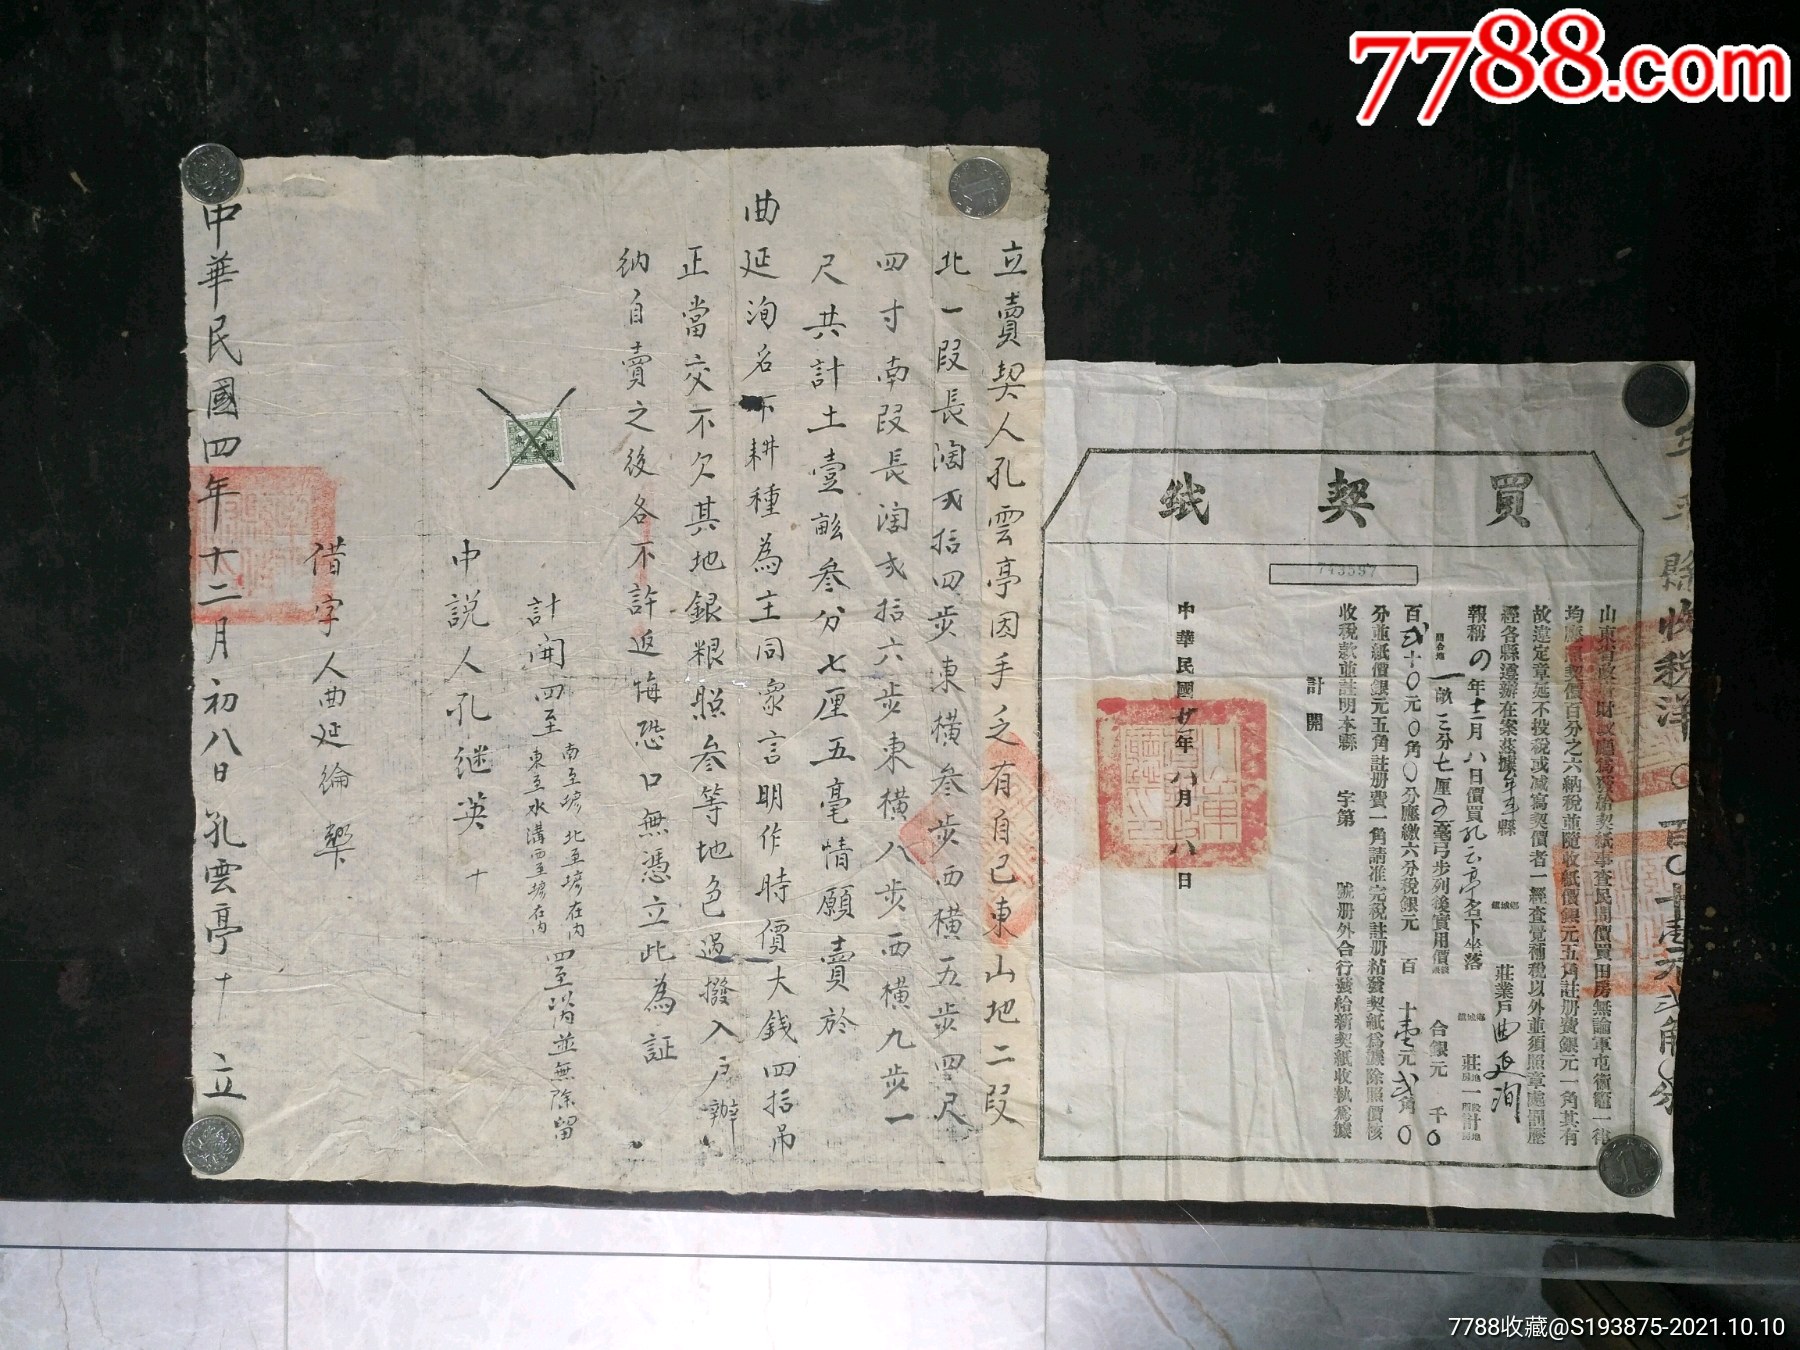 7788.com
買契紙
743597
山東省政府財政廳為發給契紙事查民間價買田房無論軍屯衛竈一律
均應照契價百分之六納稅並隨收紙價銀元五角註册費銀元一角其有
故違定章延不投稅或減寫契價者一經查覺補稅以外並須照章處罰歷
經各縣遵辦在案茲據 縣 莊業戶曲延洵
報稱四年十二月八日價買孔云亭名下坐落 莊 一段計
一畝三分七厘五毫弓步列後實用價 合銀元 千0
百弍十0元0角0分應繳六分稅銀元 百 十壹元弍角0
分並紙價銀元五角註册費一角請准完稅註册粘發契紙為據除照價核
收稅款並註明本縣 字第 號册外合行發給新契紙收執為據
計開
中華民國廿一年八月八日
立賣契人孔雲亭因手乏有自己東山地二段
北一段長濶弍拾四步東橫叁步西橫五步四尺
四寸南段長濶弍拾六步東橫八步西橫九步一
尺共計土壹畝叁分七厘五毫情願賣於
曲延洵名下耕種為主同衆言明作時價大錢四拾吊
正當交不欠其地銀粮照叁等地色過撥入戶辦
納自賣之後各不許返悔恐口無憑立此為証
計開四至 南至塂 北至塂在內 東至水溝西至塂在內 四至 並無除留
中説人孔继英十
借字人曲延綸
中華民國四年十二月初八日孔雲亭十立
7788收藏@S193875-2021.10.10